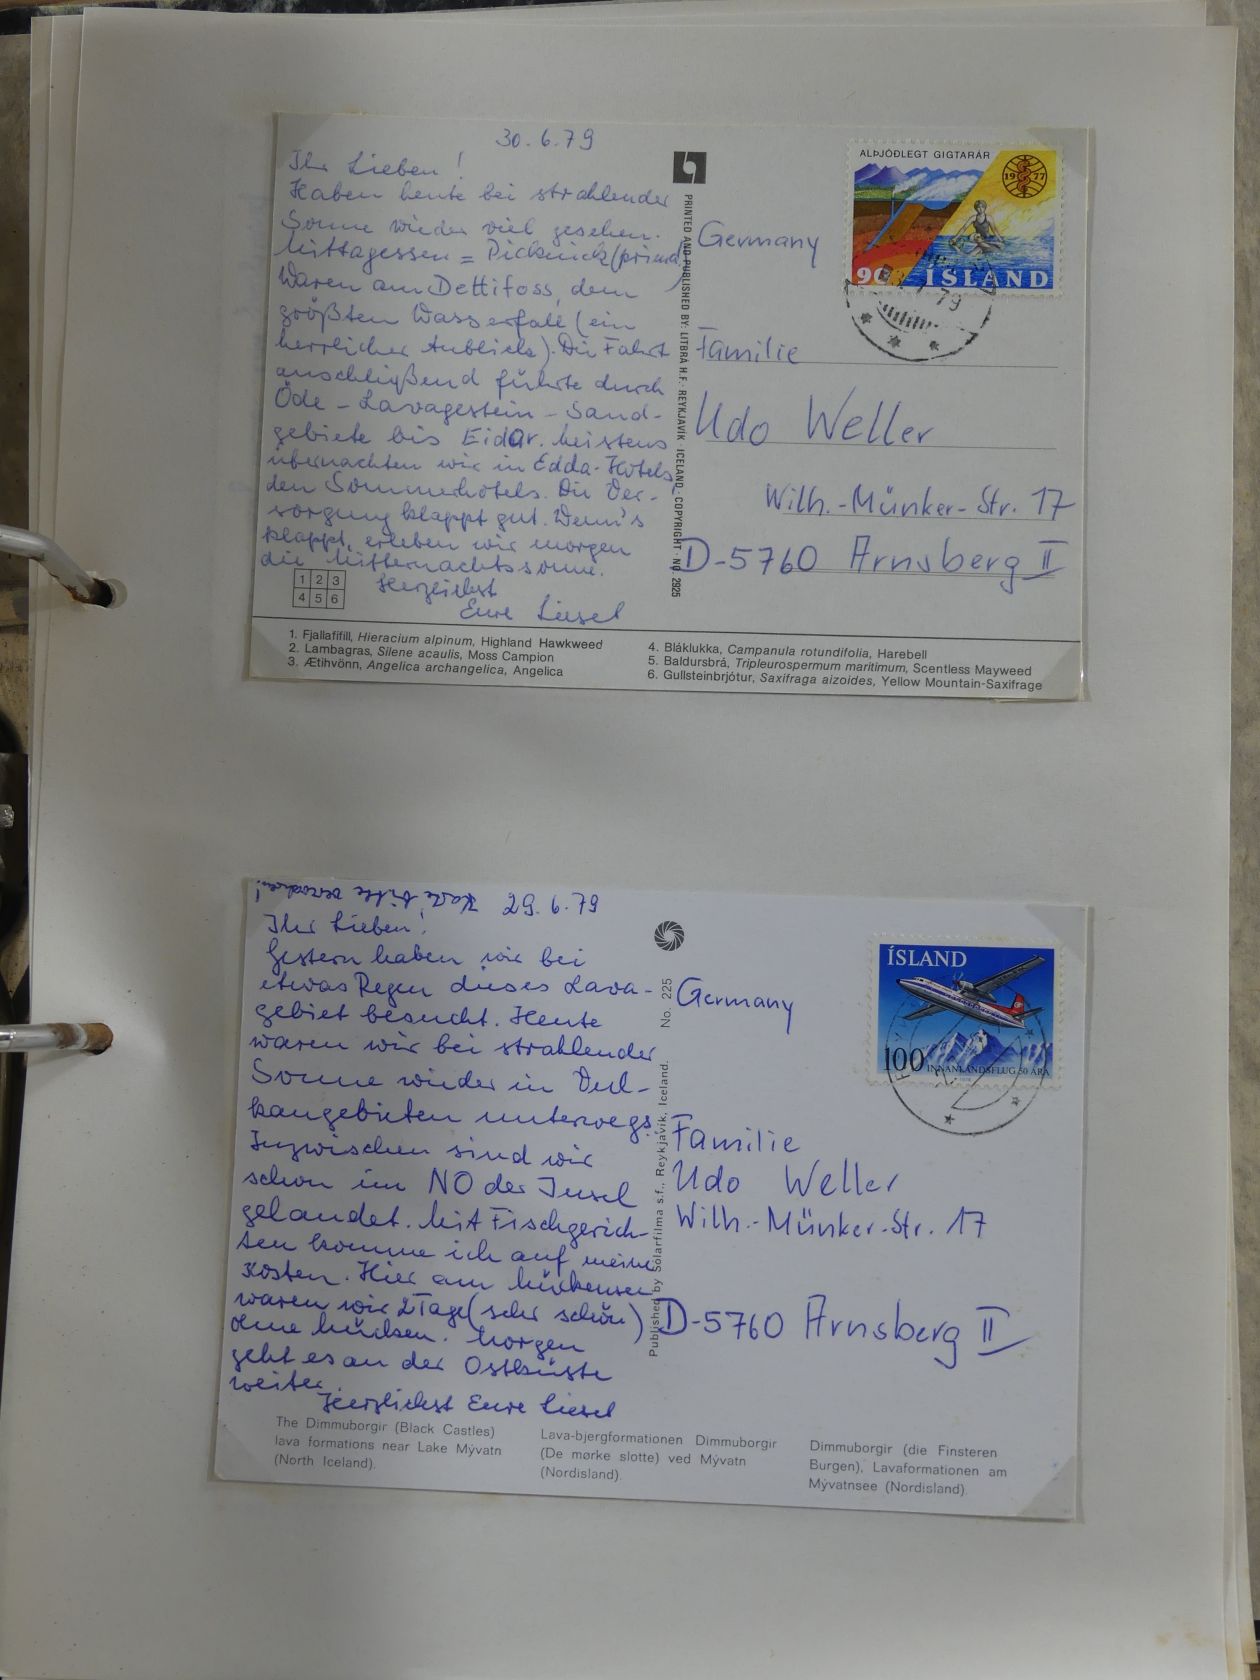 30.6.79
Ihr Lieben!
Haben heute bei strahlender
Sonne wieder viel gesehen.
Mittagessen = Picknick (prima)
Waren am Dettifoss, dem
größten Wasserfall (ein
herrlicher Anblick). Die Fahrt
anschließend führte durch
Öde - Lavagestein - Sand-
gebiete bis Eidar. Meistens
übernachten wir in Edda-Hotels,
den Sommerhotels. Die Ver-
sorgung klappt gut. Wenn's
klappt, erleben wir morgen
die Mitternachtssonne.
Herzlichst
Eure Liesel
1 2 3
4 5 6
PRINTED AND PUBLISHED BY: LITBRÁ H.F. · REYKJAVÍK · ICELAND · COPYRIGHT · NO 2925
ALÞJÓÐLEGT GIGTARÁR
1977
90 ÍSLAND
79
Germany
Familie
Udo Weller
Wilh.-Münker-Str. 17
D-5760 Arnsberg II
1. Fjallafífill, Hieracium alpinum, Highland Hawkweed
2. Lambagras, Silene acaulis, Moss Campion
3. Ætihvönn, Angelica archangelica, Angelica
4. Bláklukka, Campanula rotundifolia, Harebell
5. Baldursbrá, Tripleurospermum maritimum, Scentless Mayweed
6. Gullsteinbrjótur, Saxifraga aizoides, Yellow Mountain-Saxifrage
Karte bitte
29.6.79
Ihr Lieben!
Gestern haben wir bei
etwas Regen dieses Lava-
gebiet besucht. Heute
waren wir bei strahlender
Sonne wieder in Vul-
kangebieten unterwegs.
Inzwischen sind wir
schon im NO der Insel
gelandet. Mit Fischgerich-
ten komme ich auf meine
Kosten. Hier am Mückensee
waren wir 2 Tage (sehr schön)
ohne Mücken. Morgen
geht es an der Ostküste
weiter.
Herzlichst Eure Liesel
Published by Sólarfilma s.f., Reykjavík, Iceland. No. 225
ÍSLAND
100 INNANLANDSFLUG 50 ÁRA
Germany
Familie
Udo Weller
Wilh.-Münker-Str. 17
D-5760 Arnsberg II
The Dimmuborgir (Black Castles)
lava formations near Lake Mývatn
(North Iceland).
Lava-bjergformationen Dimmuborgir
(De mørke slotte) ved Mývatn
(Nordisland).
Dimmuborgir (die Finsteren
Burgen), Lavaformationen am
Mývatnsee (Nordisland).